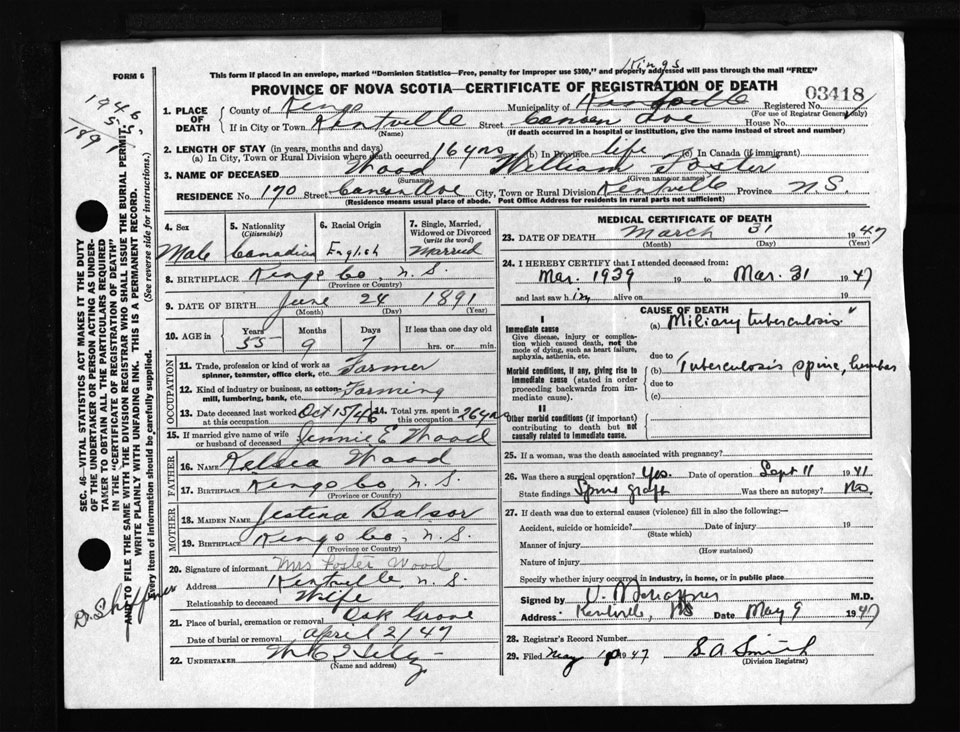 FORM 6
This form if placed in an envelope, marked "Dominion Statistics—Free, penalty for improper use $300," and properly addressed will pass through the mail "FREE"
Kings
PROVINCE OF NOVA SCOTIA—CERTIFICATE OF REGISTRATION OF DEATH
03418
1946
5
1891
1. PLACE OF DEATH
County of Kings Municipality of Registered No.
(For use of Registrar General only)
If in City or Town Kentville Street Canaan Ave House No.
(Name) (If death occurred in a hospital or institution, give the name instead of street and number)
2. LENGTH OF STAY (in years, months and days)
(a) In City, Town or Rural Division where death occurred 16 yrs (b) In Province life (c) In Canada (if immigrant)
3. NAME OF DECEASED Wood William Foster
(Surname) (Given name or names)
RESIDENCE No. 170 Street Canaan Ave City, Town or Rural Division Kentville Province N.S.
(Residence means usual place of abode. Post Office Address for residents in rural parts not sufficient)
4. Sex 5. Nationality (Citizenship) 6. Racial Origin 7. Single, Married, Widowed or Divorced (write the word)
Male Canadian English Married
8. BIRTHPLACE Kings Co, N.S.
(Province or Country)
9. DATE OF BIRTH June 24 1891
(Month) (Day) (Year)
10. AGE in Years Months Days If less than one day old
55 9 7 hrs. or min.
OCCUPATION
11. Trade, profession or kind of work as spinner, teamster, office clerk, etc. Farmer
12. Kind of industry or business, as cotton-mill, lumbering, bank, etc. Farming
13. Date deceased last worked at this occupation Oct 15/46 14. Total yrs. spent in this occupation 26 yrs
15. If married give name of wife or husband of deceased Jennie E Wood
FATHER
16. NAME Kelsea Wood
17. BIRTHPLACE Kings Co, N.S.
(Province or Country)
MOTHER
18. MAIDEN NAME Jestina Balsor
19. BIRTHPLACE Kings Co, N.S.
(Province or Country)
20. Signature of informant Mrs Foster Wood
Address Kentville, N.S.
Relationship to deceased Wife
21. Place of burial, cremation or removal Oak Grove
Date of burial or removal April 2/47
22. UNDERTAKER
(Name and address)
MEDICAL CERTIFICATE OF DEATH
23. DATE OF DEATH March 31 1947
(Month) (Day) (Year)
24. I HEREBY CERTIFY that I attended deceased from:
Mar. 1939 19 to Mar. 31 1947
and last saw him alive on 19
CAUSE OF DEATH
I
Immediate cause (a) Miliary tuberculosis
Give disease, injury or complication which caused death, not the mode of dying, such as heart failure, asphyxia, asthenia, etc.
due to
Morbid conditions, if any, giving rise to immediate cause (stated in order proceeding backwards from immediate cause).
(b) Tuberculosis spine, lumbar
due to
(c)
II
Other morbid conditions (if important) contributing to death but not causally related to immediate cause.
25. If a woman, was the death associated with pregnancy?
26. Was there a surgical operation? Yes. Date of operation Sept 11 1941
State findings Spine graft Was there an autopsy? No.
27. If death was due to external causes (violence) fill in also the following:—
Accident, suicide or homicide? Date of injury 19
(State which)
Manner of injury
(How sustained)
Nature of injury
Specify whether injury occurred in industry, in home, or in public place
Signed by M.D.
Address Kentville, NS Date May 9 1947
28. Registrar's Record Number
29. Filed May 1947 S.A. Smith
(Division Registrar)
SEC. 46—VITAL STATISTICS ACT MAKES IT THE DUTY
OF THE UNDERTAKER OR PERSON ACTING AS UNDER-
TAKER TO OBTAIN ALL THE PARTICULARS REQUIRED
IN THE "CERTIFICATE OF REGISTRATION OF DEATH"
AND TO FILE THE SAME WITH THE DIVISION REGISTRAR WHO SHALL ISSUE THE BURIAL PERMIT.
WRITE PLAINLY WITH UNFADING INK. THIS IS A PERMANENT RECORD.
Every item of information should be carefully supplied. (See reverse side for instructions.)